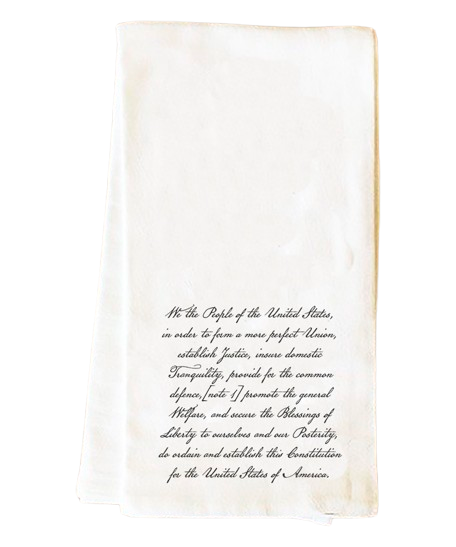 We the People of the United States,
in order to form a more perfect Union,
establish Justice, insure domestic
Tranquility, provide for the common
defence,[note 1] promote the general
Welfare, and secure the Blessings of
Liberty to ourselves and our Posterity,
do ordain and establish this Constitution
for the United States of America.